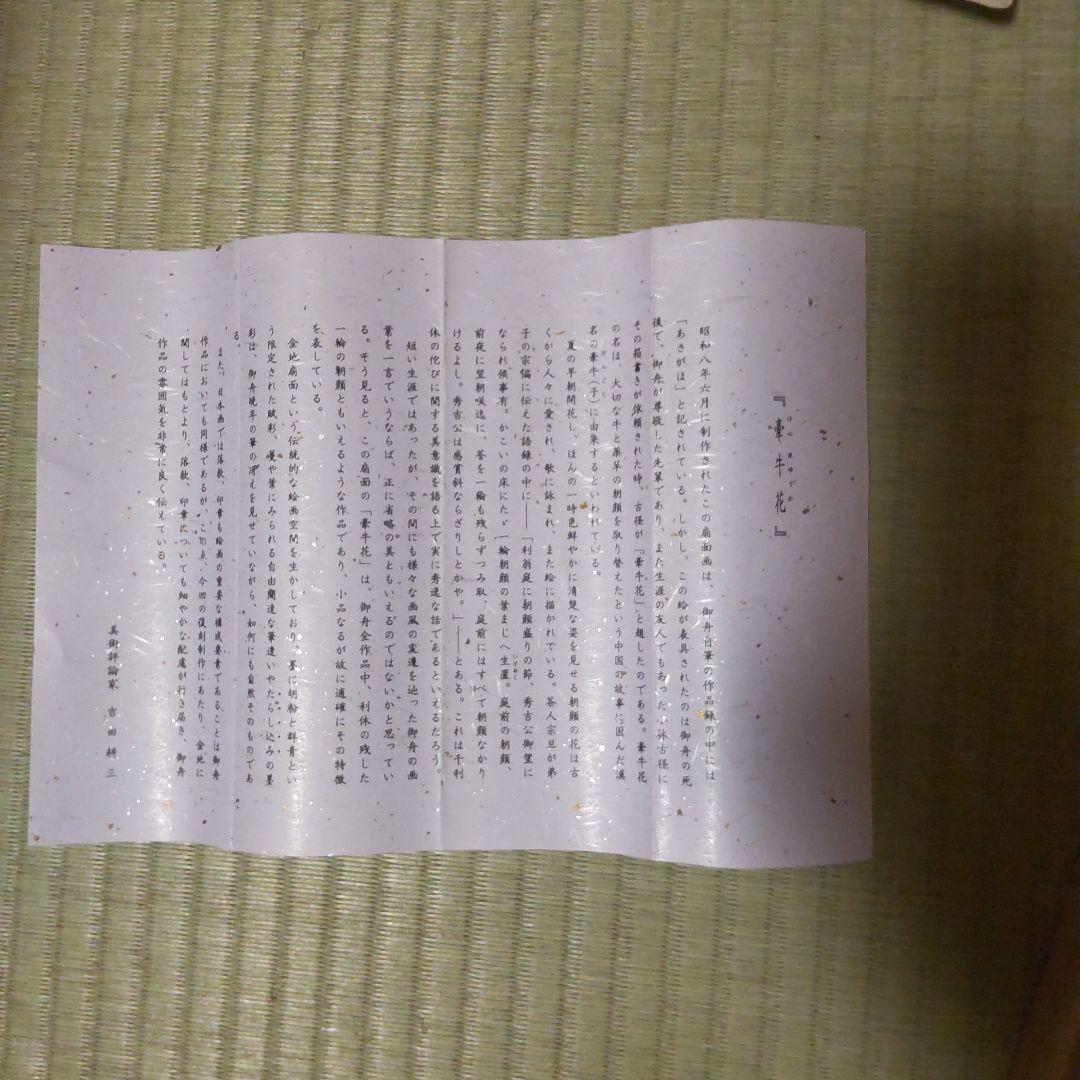 『牽牛花』
昭和八年六月に制作されたこの扇面画は、御舟自筆の作品録の中には
「あさがほ」と記されている。しかし、この絵が表具されたのは御舟の死
後で、御舟が尊敬した先輩であり、また生涯の友人でもあった小林古径に
その箱書きが依頼された時、古径が「牽牛花」と題したのである。牽牛花
の名は、大切な牛と薬草の朝顔を取り替えたという中国の故事に因んだ漢
名の牽牛(子)に由来するといわれている。
夏の早朝開花し、ほんの一時色鮮やかに清楚な姿を見せる朝顔の花は古
くから人々に愛され、歌に詠まれ、また絵に描かれている。茶人宗旦が弟
子の宗偏に伝えた語録の中に――「利翁庭に朝顔盛りの節、秀吉公御望に
なられ候事有。かこいの床にたゞ一輪朝顔の葉まじへ生置。庭前の朝顔、
前夜に翌朝咲迄に、荅を一輪も残らずつみ取、庭前にはすべて朝顔なかり
けるよし。秀吉公は感賞斜ならざりしとかや。」――とある。これは千利
休の佗びに関する美意識を語る上で実に秀逸な話であるといえるだろう。
短い生涯ではあったが、その間にも様々な画風の変遷を辿った御舟の画
業を一言でいうならば、正に省略の美ともいえるのではないかと思ってい
る。そう見ると、この扇面の「牽牛花」は、御舟全作品中、利休の残した
一輪の朝顔ともいえるような作品であり、小品なるが故に適確にその特徴
を表している。
金地扇面という伝統的な絵画空間を生かしており、墨に胡粉と群青とい
う限定された賦彩、蔓や葉にみられる自由闊達な筆遣いやたらし込みの墨
彩は、御舟晩年の筆の冴えを見せていながら、如何にも自然そのものであ
る。
また、日本画では落款、印章も絵画の重要な構成要素であることは御舟
作品においても同様であるが、この点、今回の復刻制作にあたり、金地に
関してはもとより、落款、印章についても細やかな配慮が行き届き、御舟
作品の雰囲気を非常に良く伝えている。
美術評論家・吉田耕三